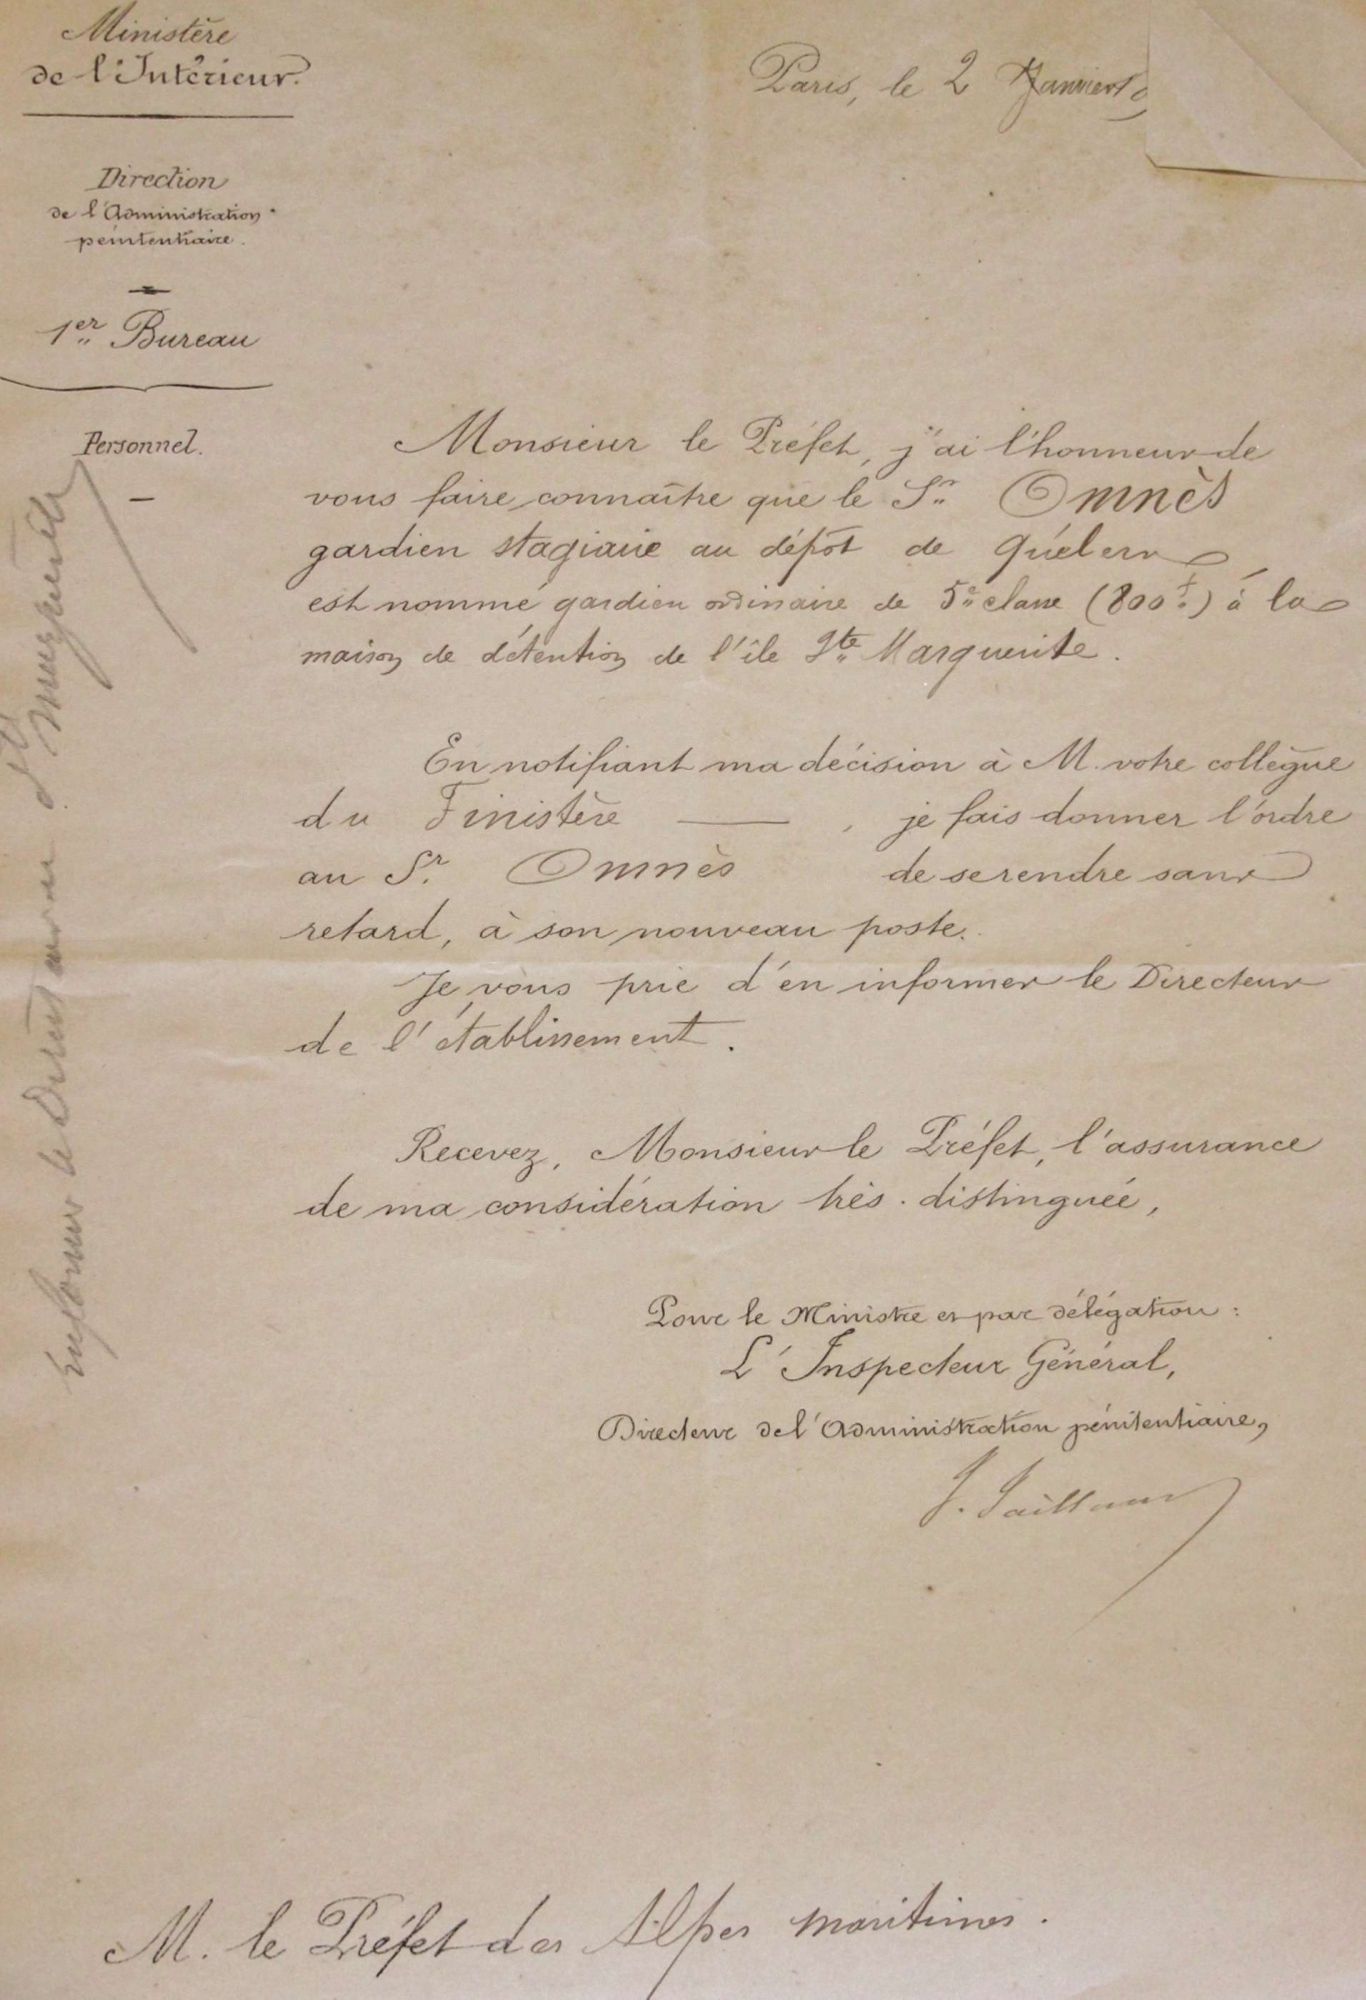 Ministère
de l'Intérieur.
Direction
de l'Administration
pénitentiaire.
1er Bureau
Personnel.
Paris, le 2 Janvier
Monsieur le Préfet, j'ai l'honneur de
vous faire connaître que le Sr Omnès
gardien stagiaire au dépôt de Quélern
est nommé gardien ordinaire de 5e classe (800 f) à la
maison de détention de l'île Ste Marguerite.
En notifiant ma décision à M. votre collègue
du Finistère , je fais donner l'ordre
au Sr. Omnès de se rendre sans
retard, à son nouveau poste.
Je vous prie d'en informer le Directeur
de l'établissement.
Recevez, Monsieur le Préfet, l'assurance
de ma considération très-distinguée,
Pour le Ministre et par délégation:
L'Inspecteur Général,
Directeur de l'Administration pénitentiaire,
M. le Préfet des Alpes maritimes.
Informer le Directeur Ste Marguerite